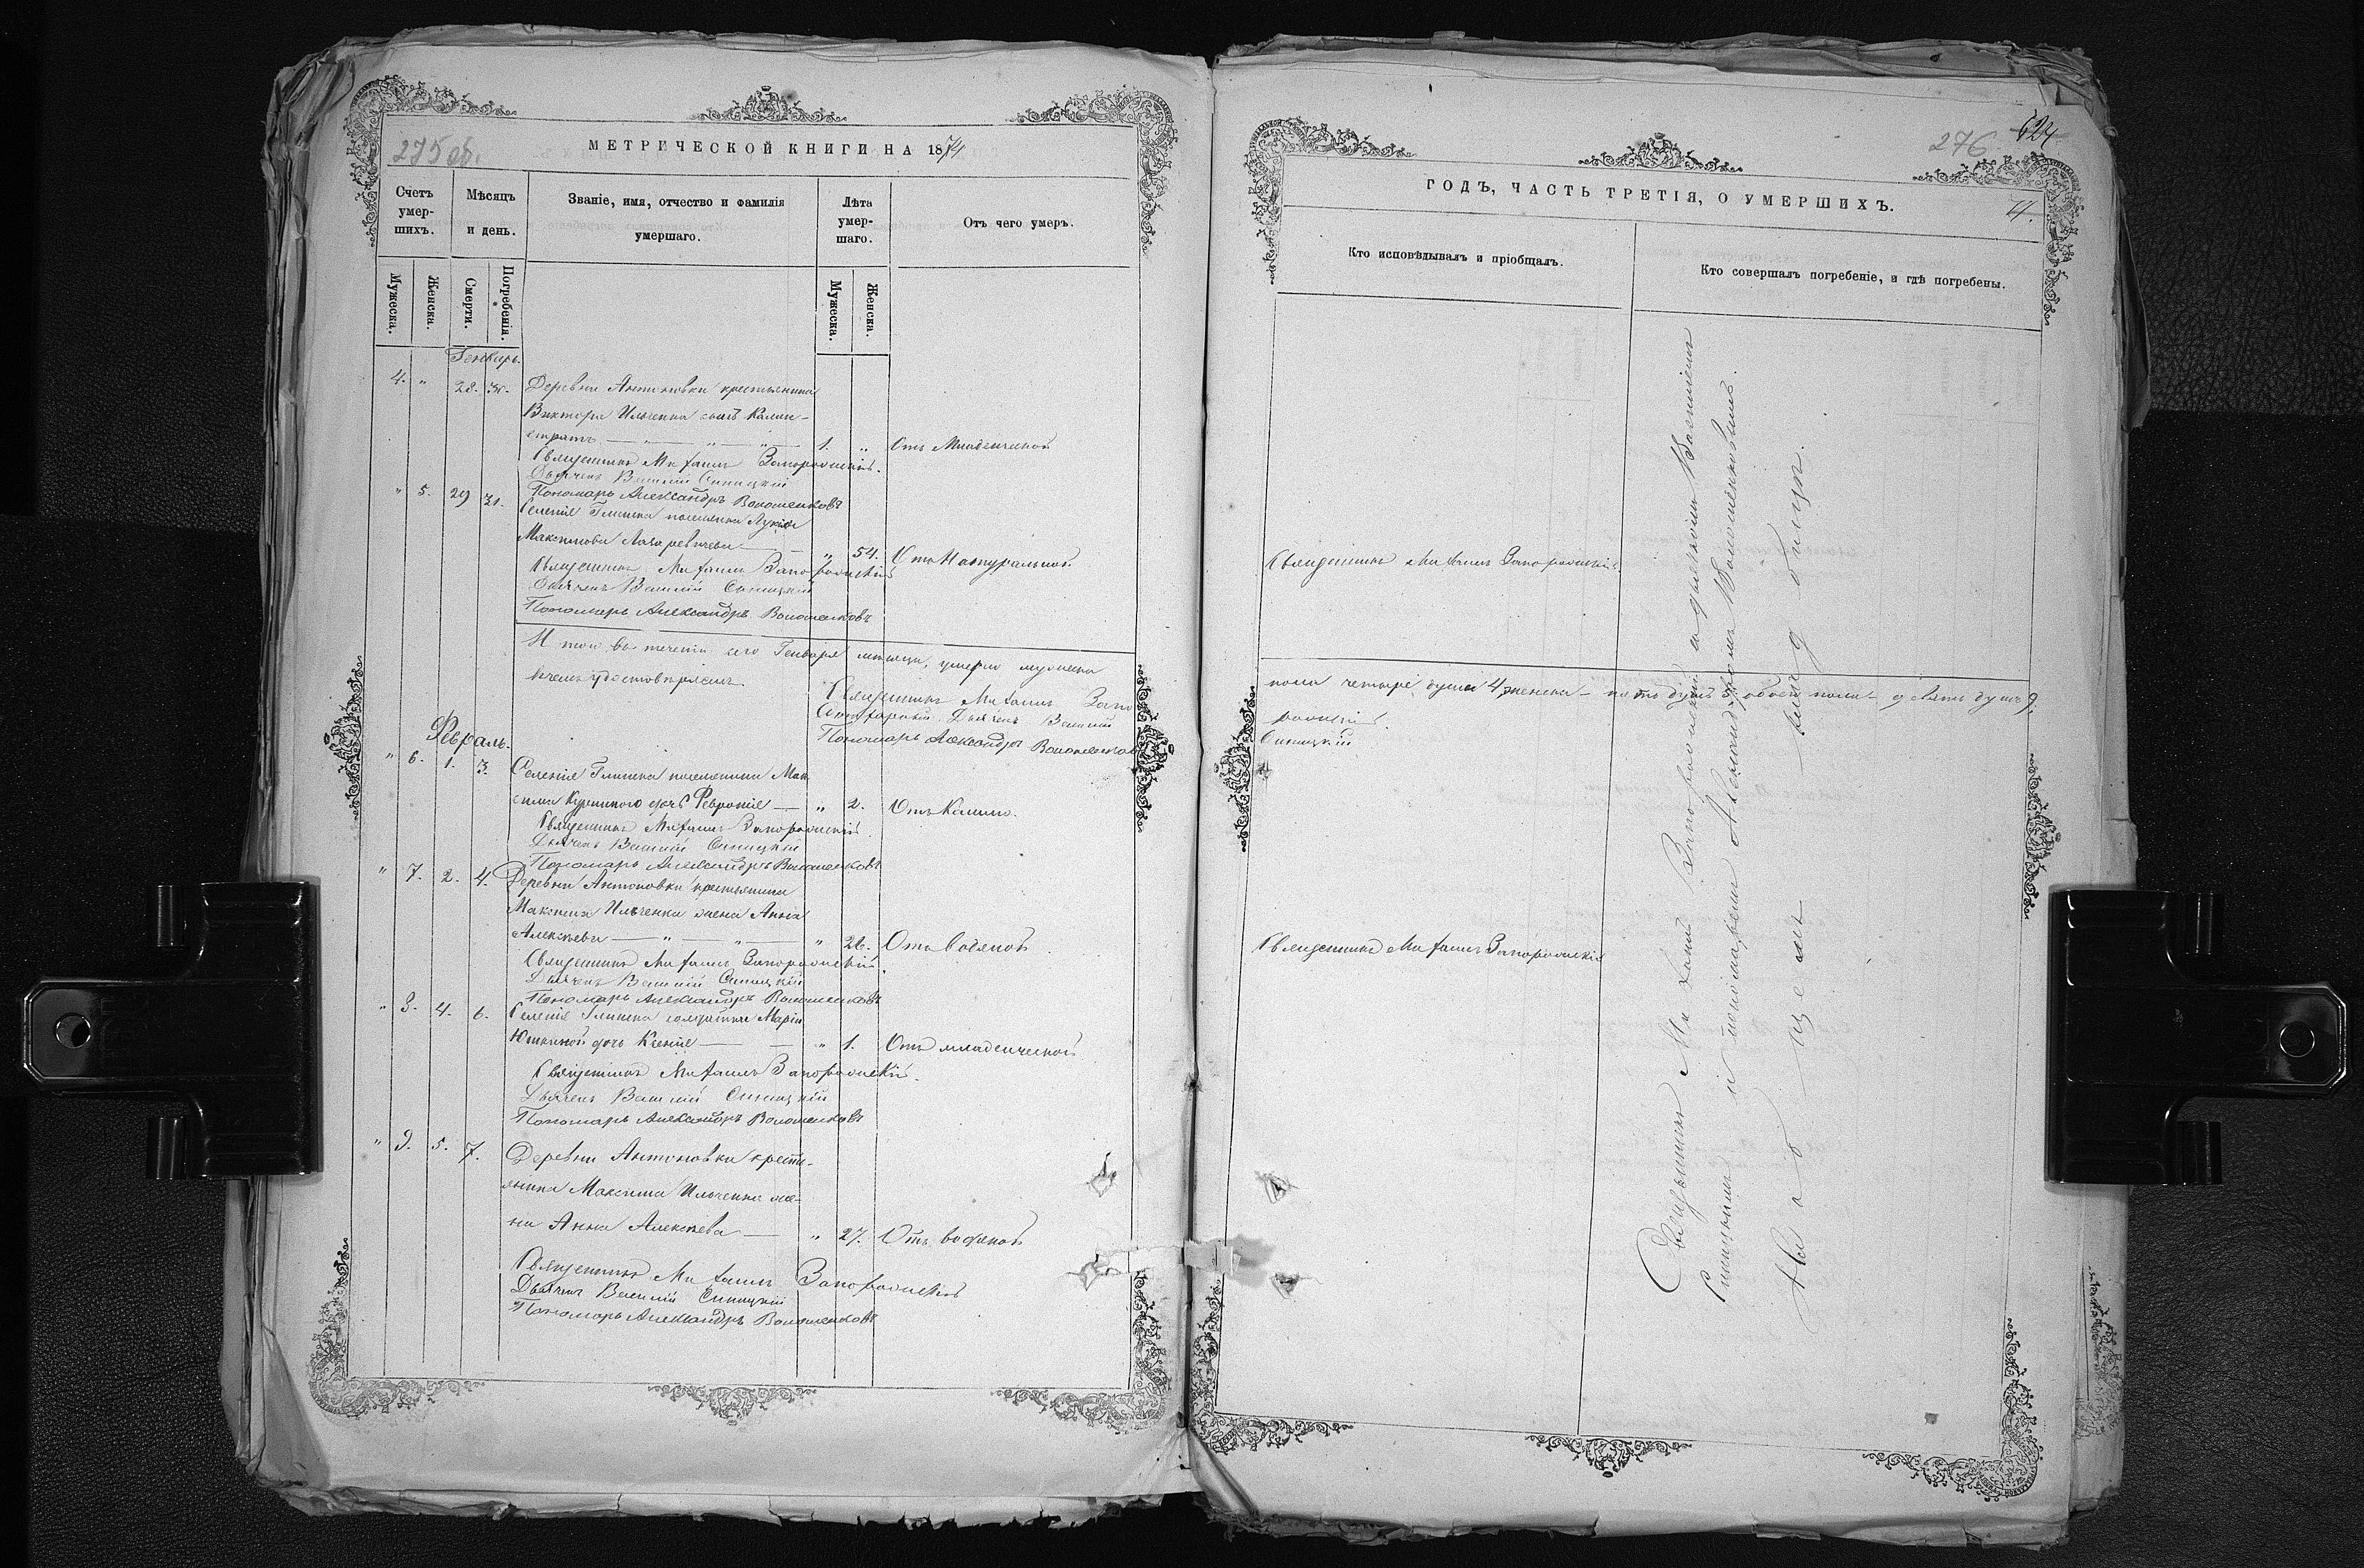 275 об.
МЕТРИЧЕСКОЙ КНИГИ НА 1874
Счетъ умер-шихъ.
Мѣсяцъ и день.
Званіе, имя, отчество и фамилія умершаго.
Лѣта умер-шаго.
Отъ чего умеръ.
Мужеска.
Женска.
Смерти.
Погребенія.
Мужеска.
Женска.
Генварь.
4. " 28. 30. Деревни Антоновки крестьянина
Виктора Ильченка сынъ Калли-
стратъ — " — " — " — 1. " Отъ Младенческой
Священникъ Михаилъ Запорожскій.
Дьячекъ Василій Синицкій
Пономарь Александръ Волошенковъ
" 5. 29 31. Селенія Глинска
Максимова Лазаревичева — " 54. Отъ Натуральной
Священникъ Михаилъ Запорожскій
Дьячекъ Василій Синицкій
Пономарь Александръ Волошенковъ
Итого въ теченіи сего Генваря мѣсяца, умерло мужеска
въ чемъ удостовѣряемъ.
Священникъ Михаилъ Запо
Дьячекъ Василій
Пономарь Александръ Волошенковъ
Февраль.
" 6. 1. 3. Селенія Глинска поселянина Мак-
сима дочь Февронія — " 2. Отъ Кашлю.
Священникъ Михаилъ Запорожскій.
Дьячекъ Василій Синицкій
Пономарь Александръ Волошенковъ
" 7. 2. 4. Деревни Антоновки крестьянина
Максима Ильченка жена Анна
Алексѣева — " — " — " 26. Отъ Водяной
Священникъ Михаилъ Запорожскій.
Дьячекъ Василій Синицкій
Пономарь Александръ Волошенковъ
" 8. 4. 6. Селенія Глинска солдатки Маріи
дочь Ксенія — — " 1. Отъ младенческой
Священникъ Михаилъ Запорожскій.
Дьячекъ Василій Синицкій
Пономарь Александръ Волошенковъ
" 9. 5. 7. Деревни Антоновки кресть-
янина Максима Ильченка же-
на Анна Алексѣева — " 27. Отъ водяной
Священникъ Михаилъ Запорожскій
Дьячекъ Василій Синицкій
Пономарь Александръ Волошенковъ
276
624
ГОДЪ, ЧАСТЬ ТРЕТІЯ, О УМЕРШИХЪ.
Кто исповѣдывалъ и пріобщалъ.
Кто совершалъ погребеніе, и гдѣ погребены.
Священникъ Михаилъ Запорожскій.
пола четыре души 4 женска — пять душъ 5 обоего пола — девять душъ 9.
рожскій.
Синицкій
Священникъ Михаилъ Запорожскій
Священникъ Михаилъ Запорожскій съ дьячкомъ Василіемъ
Синицкимъ и пономаремъ Александромъ Волошенковымъ.
На кладбищѣ.